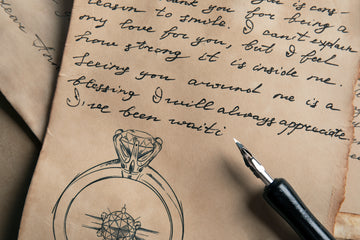 thank you for being a
reason to smile. I can't explain
my love for you, but I feel
how strong it is inside me.
Seeing you around me is a
blessing I will always appreciate
I've been waiti
Dear